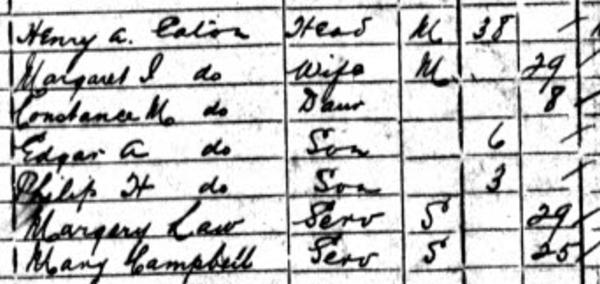 Henry A. Eaton Head M 38
Margaret I do Wife M 29
Constance M do Daur 8
Edgar A do Son 6
Philip H do Son 3
Margery Law Serv S 29
Mary Campbell Serv S 25